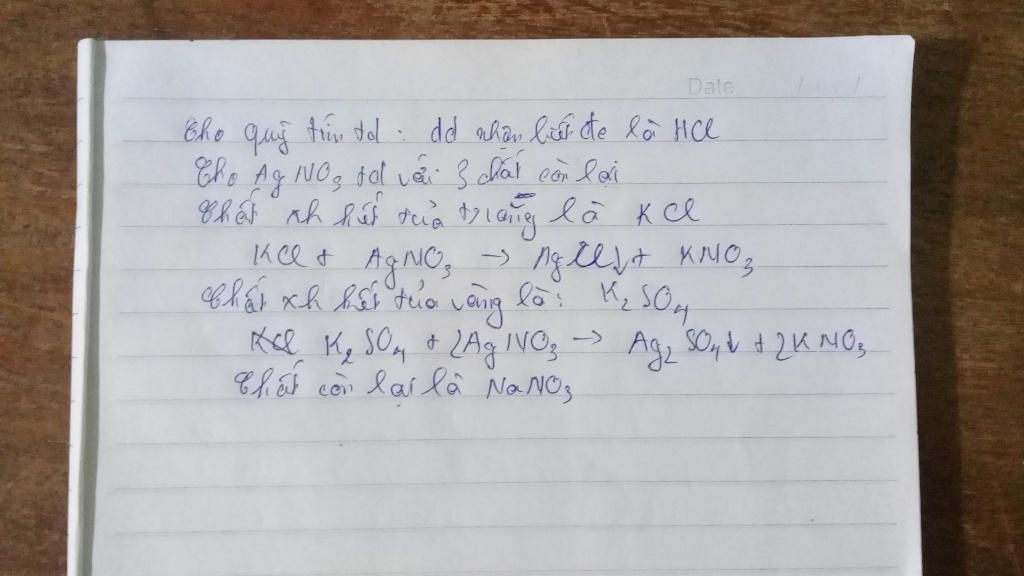 Date / /
Cho quỳ tím td : dd nhận biết đc là HCl
Cho AgNO₃ td với 3 chất còn lại
Chất xh kết tủa trắng là KCl
KCl + AgNO₃ → AgCl↓ + KNO₃
Chất xh kết tủa vàng là: K₂SO₄
KCl K₂SO₄ + 2AgNO₃ → Ag₂SO₄↓ + 2KNO₃
Chất còn lại là NaNO₃